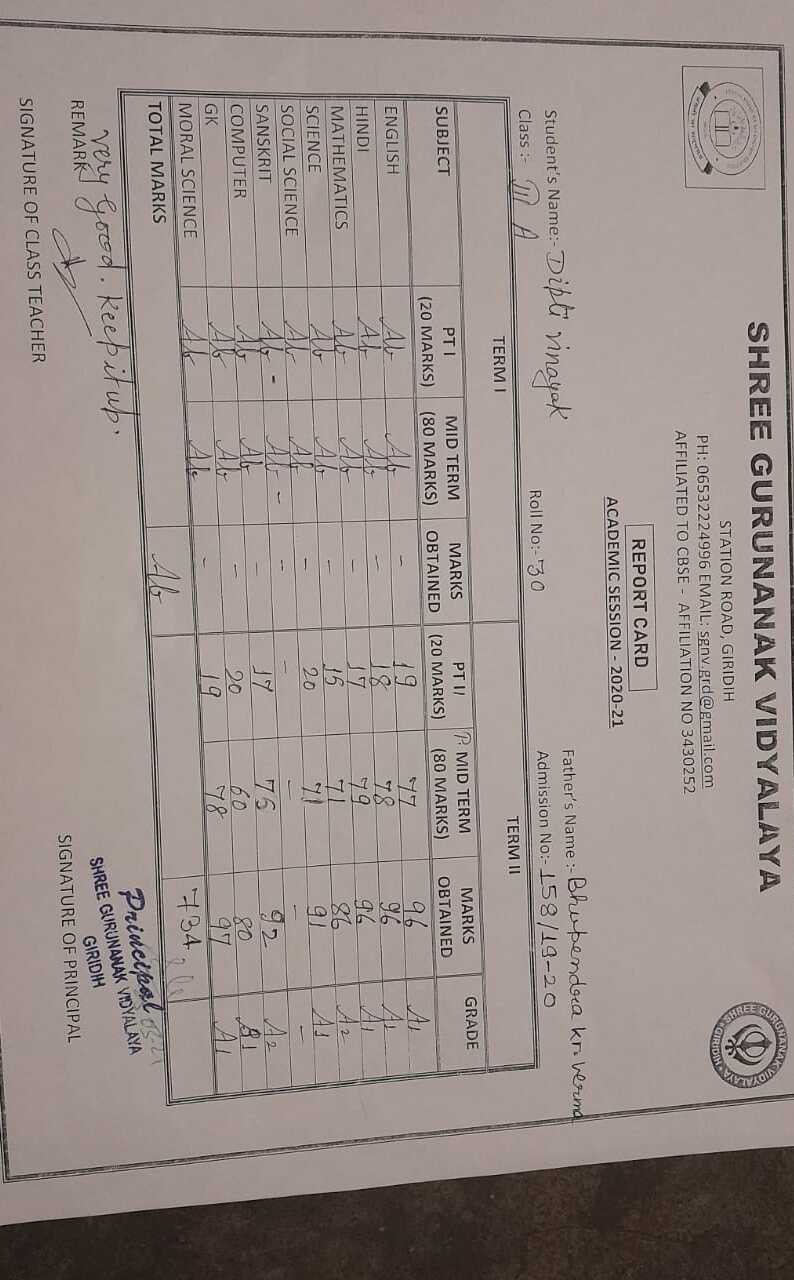 SHREE GURUNANAK VIDYALAYA
STATION ROAD, GIRIDIH
PH: 06532224996 EMAIL: sgnv.grd@gmail.com
AFFILIATED TO CBSE - AFFILIATION NO 3430252
SHREE GURUNANAK VIDYALAYA GIRIDIH
REPORT CARD
ACADEMIC SESSION - 2020-21
Student's Name:- Dipti Vinayak Father's Name :- Bhupendra kr. Verma
Class :- III A Roll No:- 30 Admission No:- 158/19-20
TERM I TERM II
SUBJECT PT I (20 MARKS) MID TERM (80 MARKS) MARKS OBTAINED PT II (20 MARKS) P. MID TERM (80 MARKS) MARKS OBTAINED GRADE
ENGLISH Ab Ab - 19 77 96 A1
HINDI Ab Ab - 18 78 96 A1
MATHEMATICS Ab Ab - 17 79 96 A1
SCIENCE Ab Ab - 15 71 86 A2
SOCIAL SCIENCE Ab Ab - 20 71 91 A1
SANSKRIT Ab - Ab - - - - - -
COMPUTER Ab Ab - 17 75 92 A2
GK Ab Ab - 20 60 80 B1
MORAL SCIENCE Ab Ab - 19 78 97 A1
TOTAL MARKS Ab 734
very Good. Keep it up.
REMARK
Principal
SHREE GURUNANAK VIDYALAYA
GIRIDIH
SIGNATURE OF CLASS TEACHER SIGNATURE OF PRINCIPAL